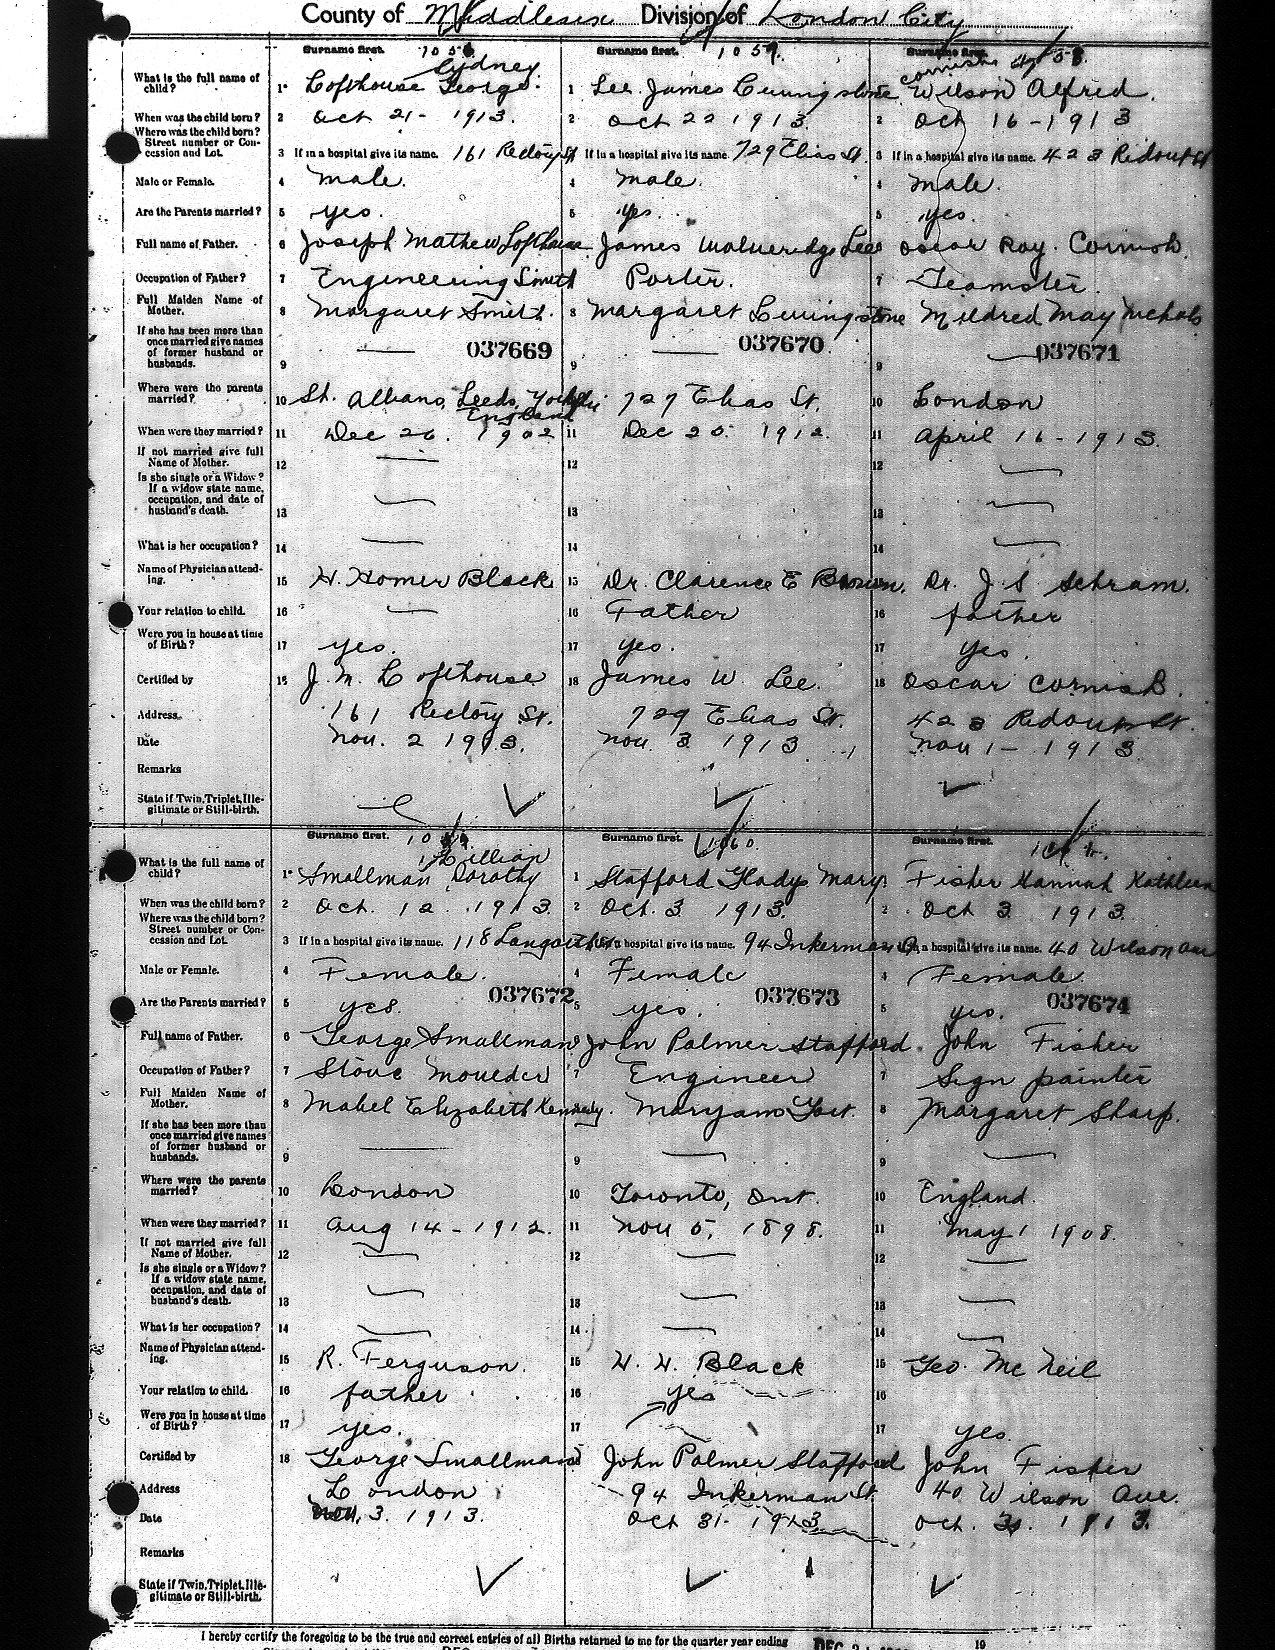 County of Middlesex Division of London City
Surname first. 1056 Surname first. 1057 Surname first. 1058
What is the full name of child? 1 Lofthouse George Sydney. 1 Lee James Livingstone 1 Cornish Wilson Alfred.
When was the child born? 2 Oct 21 - 1913. 2 Oct 22 1913. 2 Oct 16 - 1913
Where was the child born? Street number or Concession and Lot. 3 If in a hospital give its name. 161 Rectory St 3 If in a hospital give its name. 729 Elias St. 3 If in a hospital give its name. 423 Ridout St
Male or Female. 4 male. 4 male. 4 male.
Are the Parents married? 5 yes. 5 yes. 5 yes.
Full name of Father. 6 Joseph Mathew Lofthouse James Lee Oscar Roy. Cornish.
Occupation of Father? 7 Engineering Smith Porter. 7 Teamster.
Full Maiden Name of Mother. 8 Margaret Smith. 8 Margaret Livingstone Mildred May Nichols
If she has been more than once married give names of former husband or husbands. 9 — 037669 9 — 037670 9 — 037671
Where were the parents married? 10 St. Albans, Leeds, England 727 Elias St. 10 London
When were they married? 11 Dec 26. 1902 11 Dec 25. 1912. 11 April 16 - 1913.
If not married give full Name of Mother. 12 — 12 12 —
Is she single or a Widow? If a widow state name, occupation, and date of husband's death. 13 — 13 13 —
What is her occupation? 14 — 14 14 —
Name of Physician attending. 15 H. Homer Black 15 Dr. Clarence E Brown. Dr. J S Schram.
Your relation to child. 16 — 16 Father 16 father
Were you in house at time of Birth? 17 yes. 17 yes. 17 yes.
Certified by 18 J. M. Lofthouse 18 James W. Lee. 18 Oscar Cornish.
Address. 161 Rectory St. 729 Elias St. 423 Ridout St.
Date Nov. 2 1913. Nov. 3 1913 Nov 1 - 1913
Remarks
State if Twin, Triplet, Illegitimate or Still-birth.
Surname first. Surname first. 1060. Surname first.
What is the full name of child? 1 Smallman Dorothy Lillian 1 Stafford Gladys Mary. Fisher Hannah Kathleen
When was the child born? 2 Oct. 12. 1913. 2 Oct. 3 1913. 2 Oct 3 1913.
Where was the child born? Street number or Concession and Lot. 3 If in a hospital give its name. 118 in a hospital give its name. 94 Inkerman in a hospital give its name. 40 Wilson Ave
Male or Female. 4 Female. 4 Female 4 Female.
Are the Parents married? 5 yes. 037672 5 yes. 037673 5 yes. 037674
Full name of Father. 6 George Smallman John Palmer Stafford. John Fisher
Occupation of Father? 7 Stove Moulder 7 Engineer 7 Sign painter
Full Maiden Name of Mother. 8 Mabel Elizabeth Kennedy. 8 Margaret Sharp.
If she has been more than once married give names of former husband or husbands. 9 — 9 — 9 —
Where were the parents married? 10 London 10 Toronto, Ont. 10 England.
When were they married? 11 Aug 14 - 1912. 11 Nov 5, 1898. 11 May 1 1908.
If not married give full Name of Mother. 12 — 12 — 12 —
Is she single or a Widow? If a widow state name, occupation, and date of husband's death. 13 — 13 — 13 —
What is her occupation? 14 — 14 — 14 —
Name of Physician attending. 15 R. Ferguson. 15 H. H. Black 15 Geo. McNeil
Your relation to child. 16 father 16 yes 16
Were you in house at time of Birth? 17 yes. 17 17 yes.
Certified by 18 George Smallman John Palmer Stafford John Fisher
Address London 94 Inkerman St. 40 Wilson Ave.
Date Nov. 3. 1913. Oct 31 - 1913 Oct. 1913.
Remarks
State if Twin, Triplet, Illegitimate or Still-birth.
I hereby certify the foregoing to be the true and correct entries of all Births returned to me for the quarter year ending DEC 19